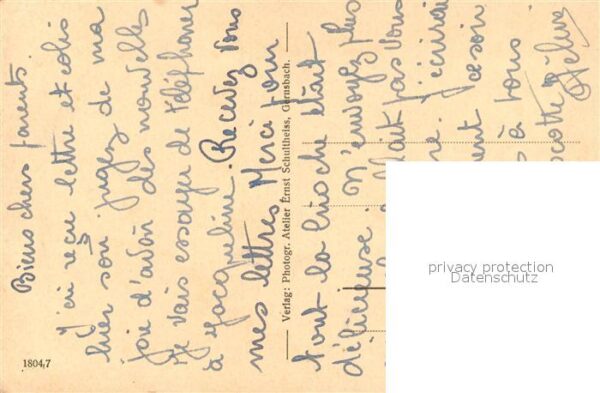 Biens chers parents.
J'ai reçu lettre et colis
hier soir jugez de ma
joie d'avoir des nouvelles
Je vais essayer de téléphoner
à Jacqueline. Recevez vous
mes lettres. Merci pour
tout la brioche était
délicieuse. N'envoyez plus
fallait pas vous
j'écrirai
ce soir
à tous
Verlag: Photogr. Atelier Ernst Schultheiss, Gernsbach.
1804,7
privacy protection
Datenschutz